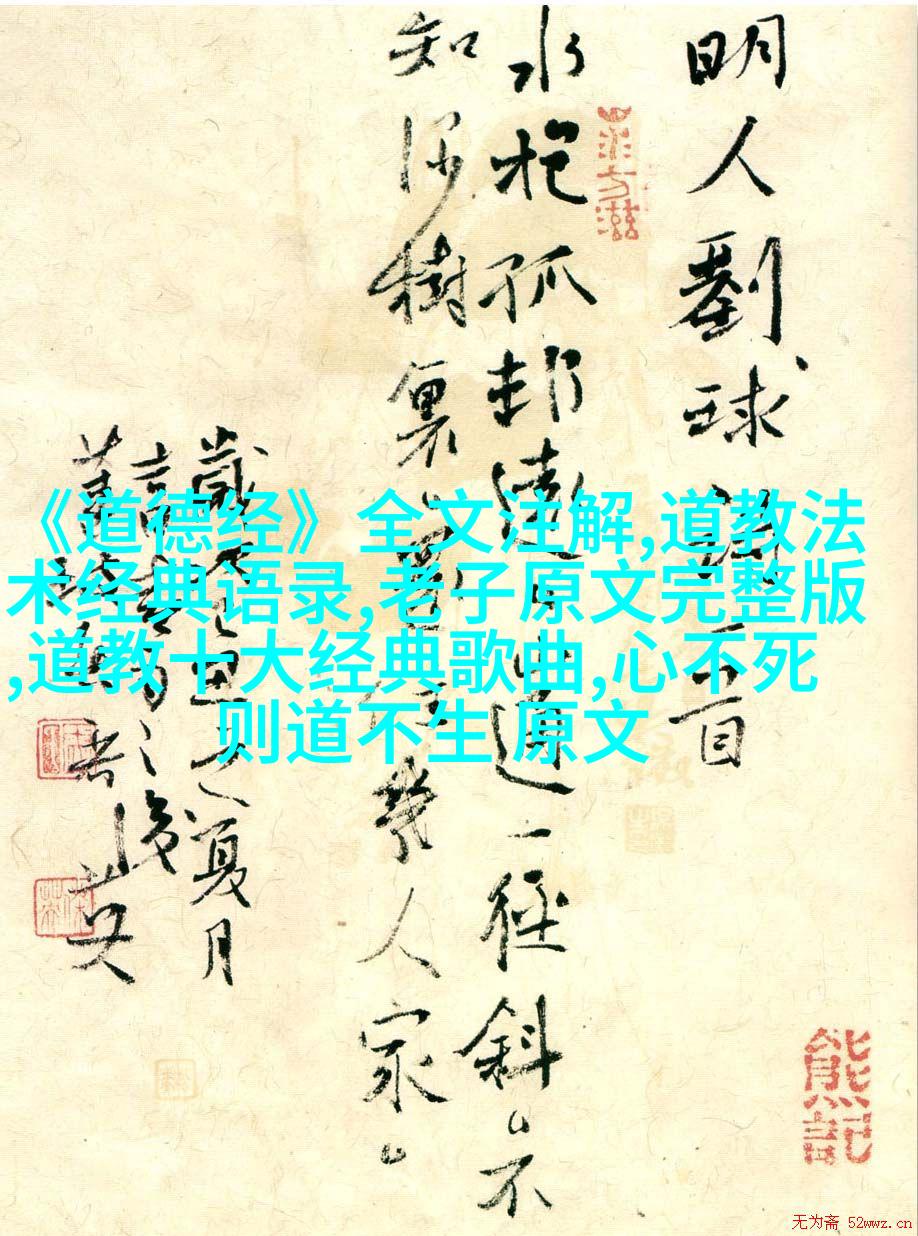 明人劉球詩一首
水抱孤邨遠山通一徑斜不
知深樹裏還住幾人家
夏月
《道德经》全文注解,道教法
术经典语录,老子原文完整版
,道教十大经典歌曲,心不死
则道不生 原文
熊記
无为斋 52wwz.cn